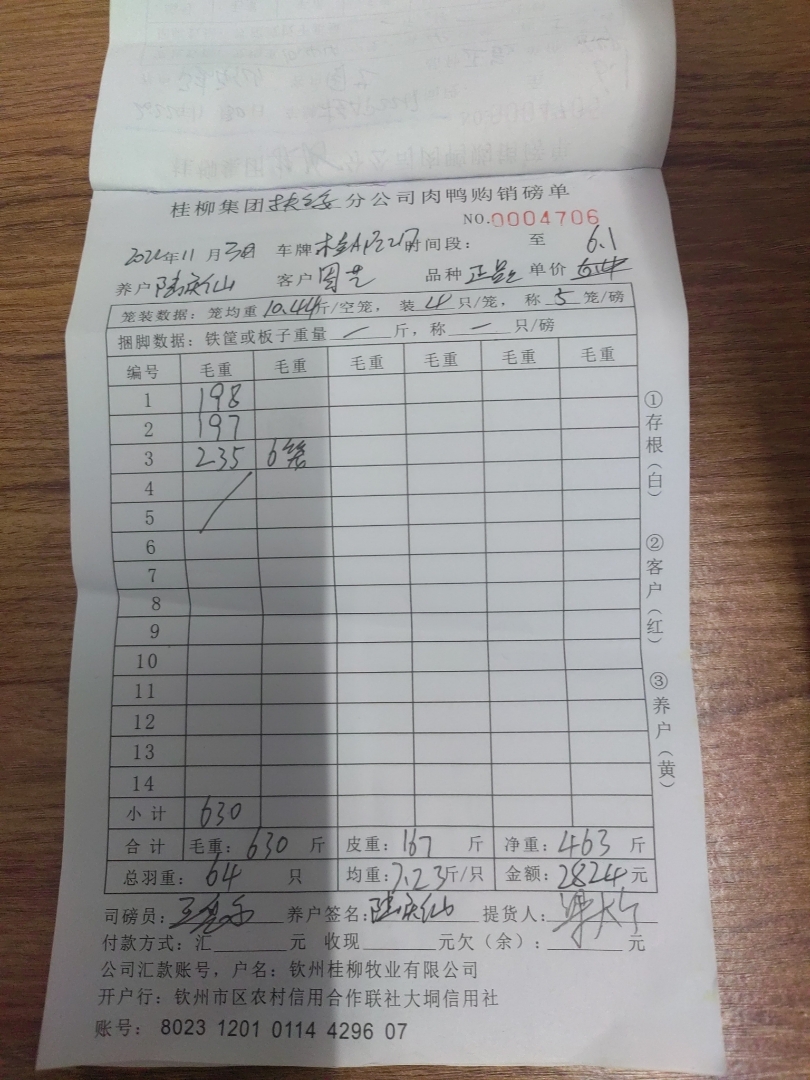 桂柳集团扶绥分公司肉鸭购销磅单
NO.0004706
11月30日 车牌 时间段： 至 6.1
养户 陆庆仙 客户 周芝 品种 正品 单价 6.4
笼装数据：笼均重10.44斤/空笼，装4只/笼，称5笼/磅
捆脚数据：铁筐或板子重量 一 斤，称 一 只/磅
编号 毛重 毛重 毛重 毛重 毛重 毛重
1 198
2 197
3 235 6笼
4
5
6
7
8
9
10
11
12
13
14
小计 630
合计 毛重：630斤 皮重：167斤 净重：463斤
总羽重：64只 均重：7.23斤/只 金额：2824元
司磅员： 养户签名：陆庆仙 提货人：
付款方式：汇 元 收现 元欠（余）： 元
公司汇款账号，户名：钦州桂柳牧业有限公司
开户行：钦州市区农村信用合作联社大垌信用社
账号：8023 1201 0114 4296 07
①存根（白）
②客户（红）
③养户（黄）